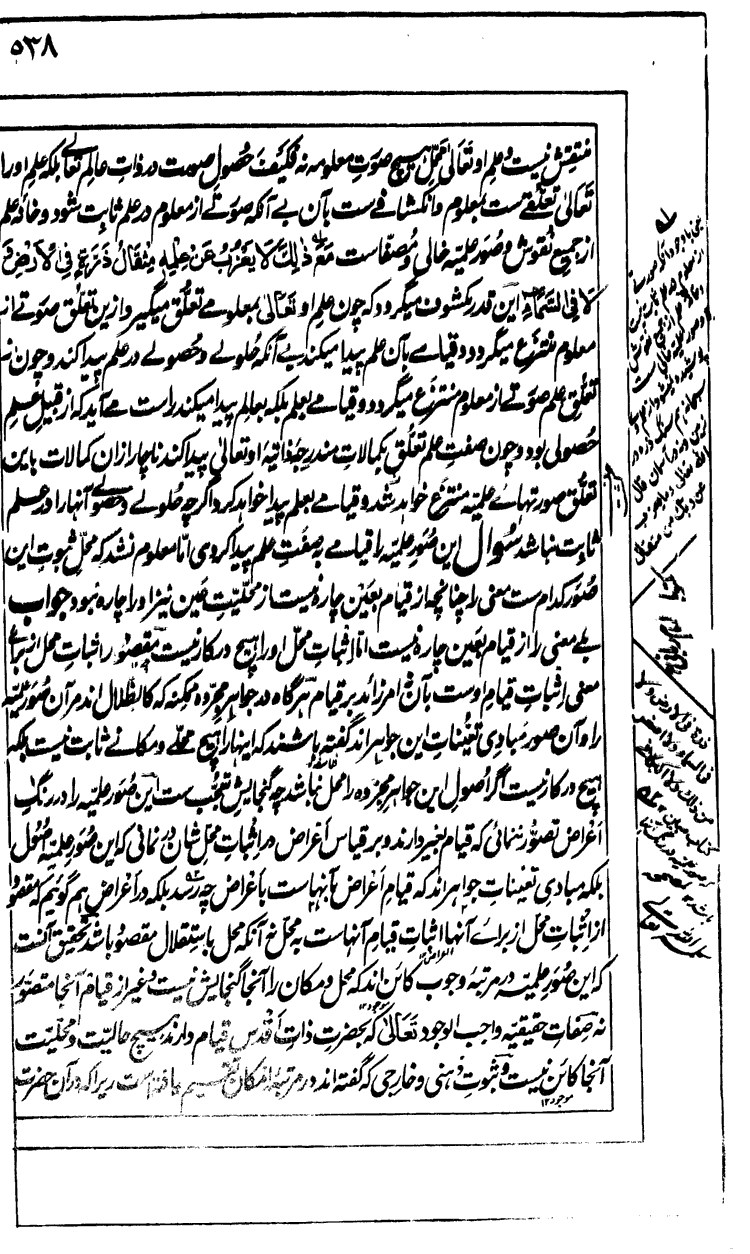 ۵۳۸
منتقش نیست و علم او تعالیٰ محل ہیچ صورت معلومہ نہ فکیف حصول صورت در ذات عالم تعالیٰ بلکہ علم او را
تعالیٰ تعلقے ست بمعلوم و انکشافے ست بآن بے آنکہ صورتے از معلوم در علم ثابت شود و خانہ علم
از جمیع نقوش و صور علمیہ خالی و مصفاست مع ذٰلک لَا یَعْزُبُ عَنْ عِلْمِہٖ مِثْقَالُ ذَرَّۃٍ فِی الْاَرْضِ وَ
لَا فِی السَّمَاءِ این قدر مکشوف میگردد کہ چون علم او تعالیٰ بمعلومے تعلق میگیرد ازین تعلق صورتے از
معلوم منتزع میگردد و قیامے بآن علم پیدا میکند بے آنکہ حلولے و حصولے در علم پیدا کند و چون از
تعلق علم صورتے از معلوم منتزع میگردد و قیامے بعلم بلکہ بعالم پیدا میکند راست مے آید کہ از قبیل علم
حصولی بود و چون صفت علم تعلق بکمالات مندرجۂ ذاتیۂ او تعالیٰ پیدا کند ناچار ازان کمالات باین
تعلق صورتہائے علمیہ منتزع خواہد شد و قیامے بعلم پیدا خواہد کرد اگرچہ حلولے و حصولے آنہا را در علم
ثابت نباشد سوال این صور علمیہ را قیامے بہ صفت علم پیدا کردی اما معلوم نشد کہ محل ثبوت این
صور کدام ست معنی را چنانچہ از قیام بعین چارہ نیست از محلیت عین نیز او را چارہ نبود جواب
بلے معنی را از قیام بعین چارہ نیست اما اثبات محل او را ہیچ در کار نیست مقصود از اثبات محل از برائے
معنی اثبات قیام اوست بآن نہ امر زائد بر قیام ہرگاہ در جواہر مجردہ ممکنہ کہ کالظلال اند مر آن صور علمیہ
را و آن صور مبادی تعینات این جواہر اند گفتہ باشند کہ اینہا را ہیچ محلے و مکانے ثابت نیست بلکہ
ہیچ در کار نیست اگر اصول این جواہر مجردہ را محل نباشد چہ گنجایش تعجب ست این صور علمیہ را در رنگ
اعراض تصور ننمائی کہ قیام بغیر دارند و بر قیاس اعراض در اثبات محل شان در نمانی کہ این صور علمیہ اصول
بلکہ مبادی تعینات جواہر اند کہ قیام اعراض بآنہاست باعراض چہ رسد بلکہ در اعراض ہم گوئیم کہ مقصود
از اثبات محل از برائے آنہا اثبات قیام آنہاست بہ محل نہ آنکہ محل باستقلال مقصود باشد تحقیق آنست
کہ این صور علمیہ در مرتبۂ وجوب کائن اند کہ محل و مکان را آنجا گنجایش نیست و غیر از قیام آنجا متصور
نہ صفات حقیقیہ واجب الوجود تعالیٰ کہ بحضرت ذات اقدس قیام دارند ہیچ حالیت و محلیت
آنجا کائن نیست و ثبوت ذہنی و خارجی کہ گفتہ اند در مرتبۂ امکان تقسیم یافتہ است زیرا کہ در آن حضرت